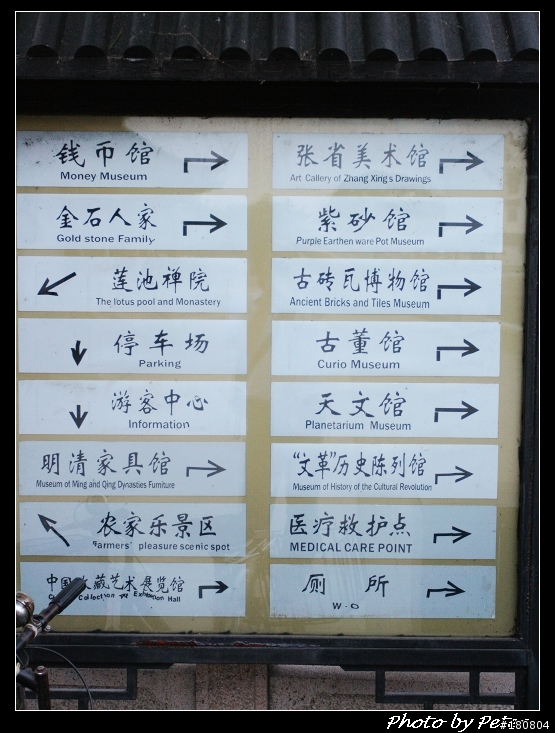 钱币馆
Money Museum
金石人家
Gold stone Family
莲池禅院
The lotus pool and Monastery
停车场
Parking
游客中心
Information
明清家具馆
Museum of Ming and Qing Dynasties Furniture
农家乐景区
Farmers' pleasure scenic spot
中国收藏艺术展览馆
Collection Exhibition Hall
张省美术馆
Art Callery of Zhang Xing's Drawings
紫砂馆
Purple Earthen ware Pot Museum
古砖瓦博物馆
Ancient Bricks and Tiles Museum
古董馆
Curio Museum
天文馆
Planetarium Museum
"文革"历史陈列馆
Museum of History of the Cultural Revolution
医疗救护点
MEDICAL CARE POINT
厕所
W·O
Photo by
#180804